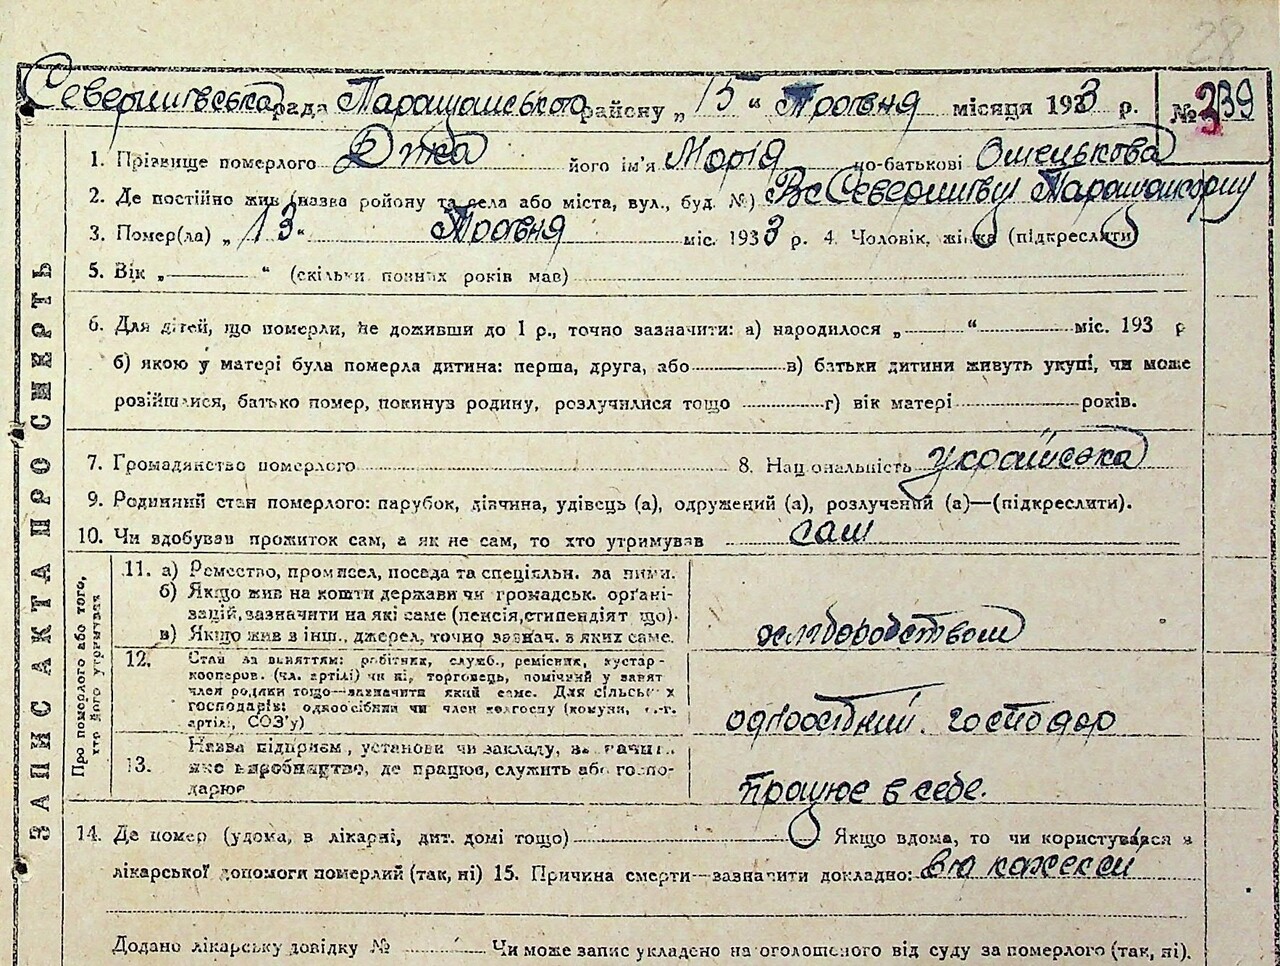 28
Северинівська рада Таращанського району „ 15 “ Травня місяця 1933 р. № 339
1. Прізвище померлого його ім'я Марія по-батькові
2. Де постійно жив (назва району та села або міста, вул., буд. №)
3. Помер(ла) „ 13 “ Травня міс. 1933 р. 4. Чоловік, жінка (підкреслити)
5. Вік „ “ (скільки повних років мав)
6. Для дітей, що померли, не доживши до 1 р., точно зазначити: а) народилося „ “ міс. 193 р
б) якою у матері була померла дитина: перша, друга, або в) батьки дитини живуть укупі, чи може
розійшлися, батько помер, покинув родину, розлучилися тощо г) вік матері років.
7. Громадянство померлого 8. Національність українська
9. Родинний стан померлого: парубок, дівчина, удівець (а), одружений (а), розлучений (а)—(підкреслити).
10. Чи здобував прожиток сам, а як не сам, то хто утримував сам
ЗАПИС АКТА ПРО СМЕРТЬ
Про померлого або того,
хто його утримував
11. а) Ремество, промисел, посада та спеціяльн. за ними.
б) Якщо жив на кошти держави чи громадськ. орґані-
зацій, зазначити на які саме (пенсія, стипендіят що).
в) Якщо жив з інш. джерел, точно зазнач. з яких саме.
хліборобством
12. Стан за заняттям: робітник, служб., ремісник, кустар-
кооперов. (чл. артілі) чи ні, торговець, помічний у занят
член родини тощо—зазначити який саме. Для сільських
господарів: одноосібний чи член колгоспу (комуни, с.-г.
артілі, СОЗ'у)
одноосібний господар
13. Назва підприєм., установи чи закладу, зазначити
яке виробництво, де працює, служить або госпо-
дарює
працює в себе.
14. Де помер (удома, в лікарні, дит. домі тощо) Якщо вдома, то чи користувався з
лікарської допомоги померлий (так, ні) 15. Причина смерти—зазначити докладно: від
Додано лікарську довідку № Чи може запис укладено на оголошеного від суду за померлого (так, ні).